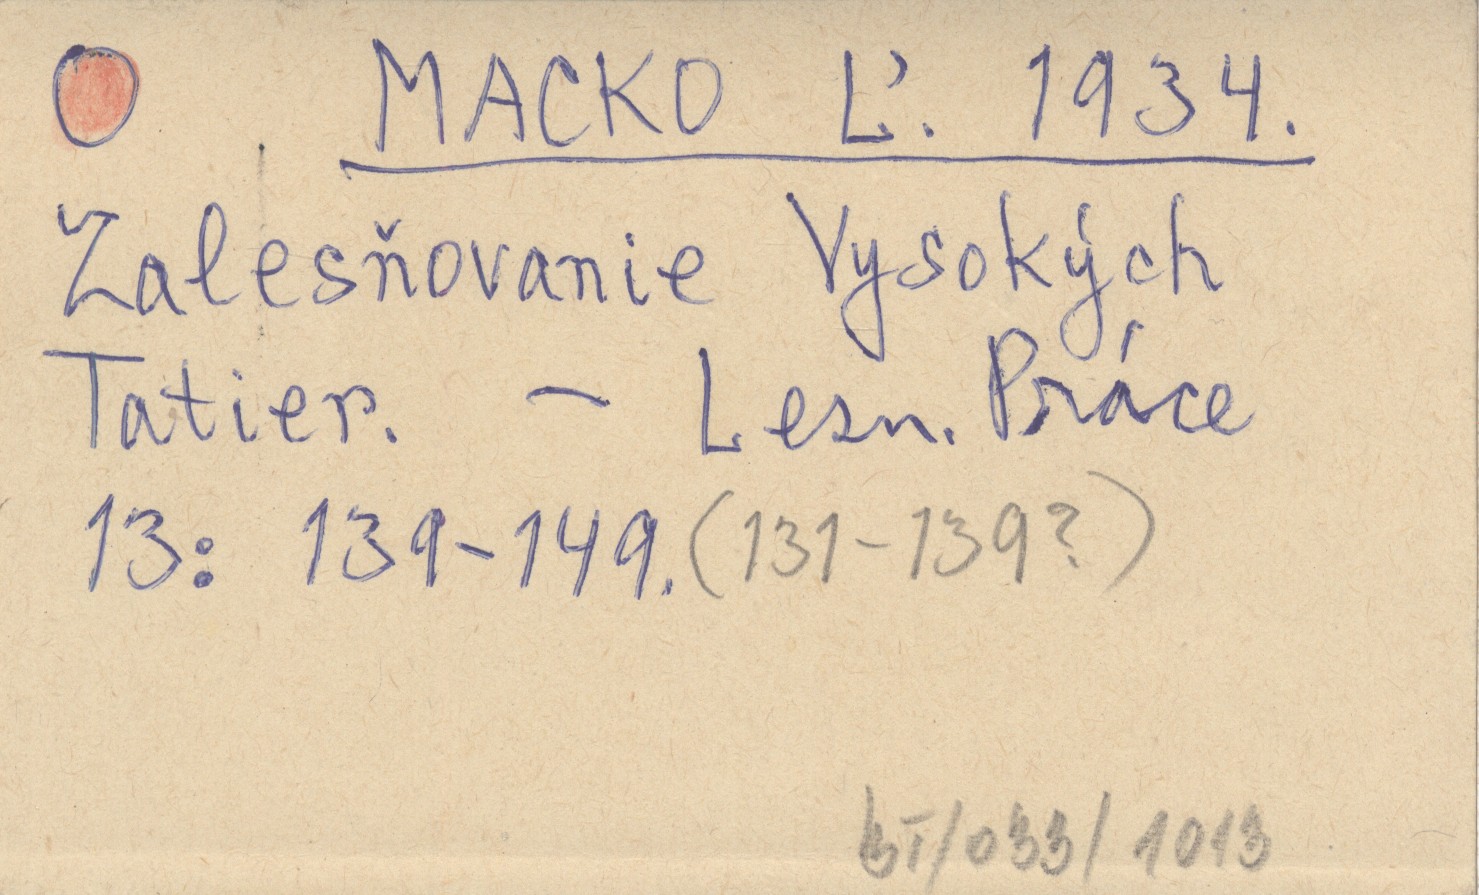 MACKO Ľ. 1934.
Zalesňovanie Vysokých
Tatier. - Lesn. Práce
13: 139-149. (131-139?)
/033/1013